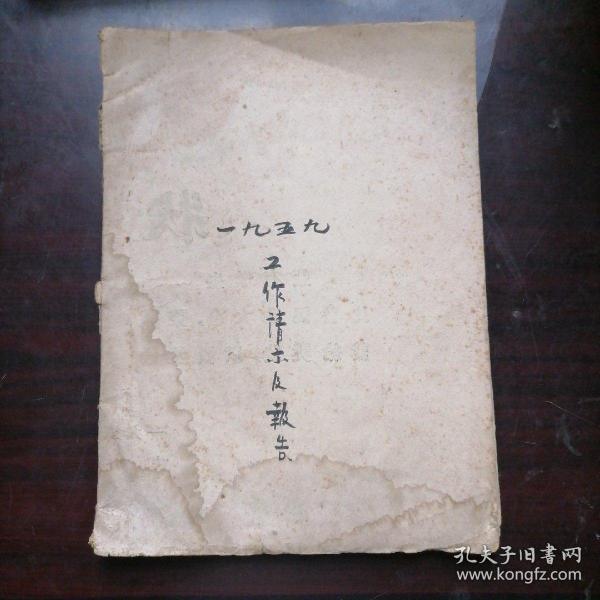 一九五九
工作請示及報告
孔夫子旧書网
www.kongfz.com